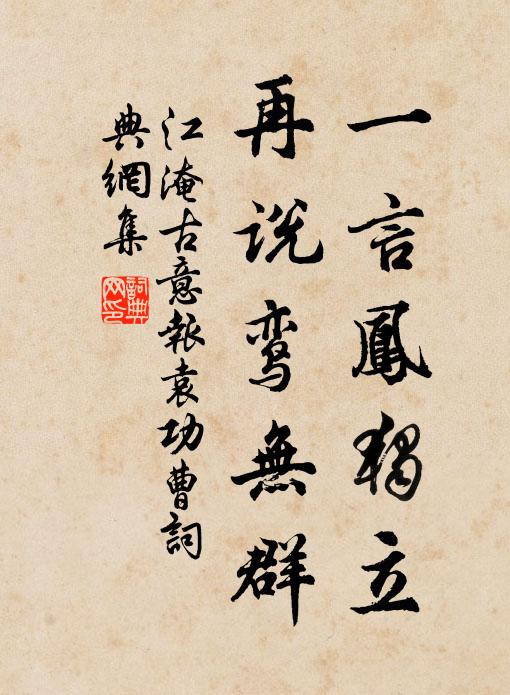 一言鳳獨立
再说鸾無群
江淹古意報袁功曹詞
典網集
詞典网印